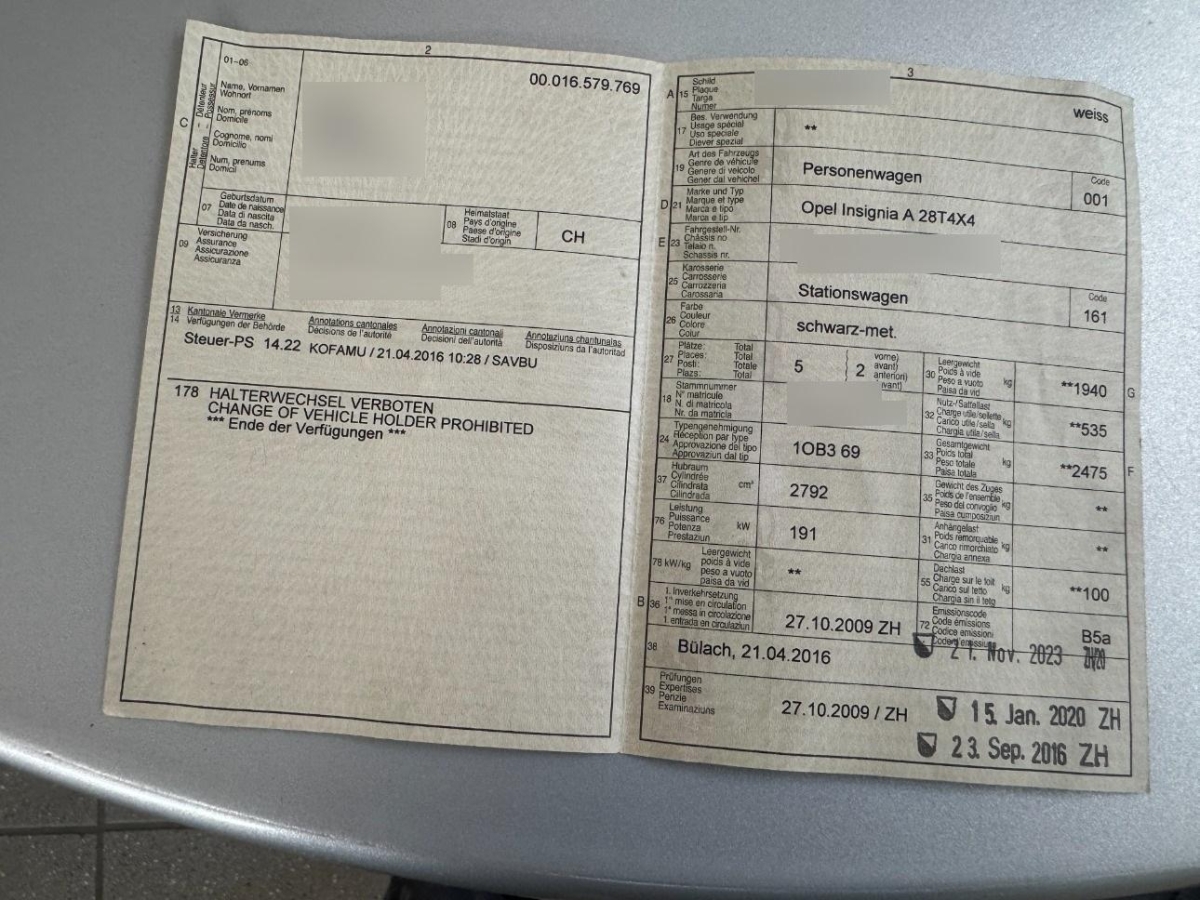 2
01-06
00.016.579.769
C
Halter Détenteur
Detentore Possessur
Name, Vornamen
Wohnort
Nom, prénoms
Domicile
Cognome, nomi
Domicilio
Num, prenums
Domicil
07
Geburtsdatum
Date de naissance
Data di nascita
Data da nasch.
08
Heimatstaat
Pays d'origine
Paese d'origine
Stadi d'origin
CH
09
Versicherung
Assurance
Assicurazione
Assicuranza
13 Kantonale Vermerke
14 Verfügungen der Behörde
Annotations cantonales
Décisions de l'autorité
Annotazioni cantonali
Decisioni dell'autorità
Annotaziuns chantunalas
Disposiziuns da l'autoritad
Steuer-PS 14.22 KOFAMU / 21.04.2016 10:28 / SAVBU
178 HALTERWECHSEL VERBOTEN
CHANGE OF VEHICLE HOLDER PROHIBITED
*** Ende der Verfügungen ***
3
A 15
Schild
Plaque
Targa
Numer
weiss
17
Bes. Verwendung
Usage spécial
Uso speciale
Diever spezial
**
19
Art des Fahrzeugs
Genre de véhicule
Genere di veicolo
Gener dal vehichel
Personenwagen
Code
001
D 21
Marke und Typ
Marque et type
Marca e tipo
Marca e tip
Opel Insignia A 28T4X4
E 23
Fahrgestell-Nr.
Châssis no
Telaio n.
Schassis nr.
25
Karosserie
Carrosserie
Carrozzeria
Carossaria
Stationswagen
Code
161
26
Farbe
Couleur
Colore
Colur
schwarz-met.
27
Plätze: Total
Places: Total
Posti: Totale
Plazs: Total
5
2
vorne)
avant)
anteriori)
avant)
30
Leergewicht
Poids à vide
Peso a vuoto
Paisa da vid
kg
**1940
G
18
Stammnummer
N° matricule
N. di matricola
Nr. da matricla
32
Nutz-/Sattellast
Charge utile/sellette
Carico utile/sella
Chargia utila/sella
kg
**535
24
Typengenehmigung
Réception par type
Approvazione del tipo
Approvaziun dal tip
1OB3 69
33
Gesamtgewicht
Poids total
Peso totale
Paisa totala
kg
**2475
F
37
Hubraum
Cylindrée
Cilindrata
Cilindrada
cm³
2792
35
Gewicht des Zuges
Poids de l'ensemble
Peso del convoglio
Paisa cumposiziun
kg
**
76
Leistung
Puissance
Potenza
Prestaziun
kW
191
31
Anhängelast
Poids remorquable
Carico rimorchiato
Chargia annexa
kg
**
78 kW/kg
Leergewicht
poids à vide
peso a vuoto
paisa da vid
**
55
Dachlast
Charge sur le toit
Carico sul tetto
Chargia sin il tetg
kg
**100
B 36
1. Inverkehrsetzung
1re mise en circulation
1a messa in circolazione
1. entrada en circulaziun
27.10.2009 ZH
72
Emissionscode
Code émissions
Codice emissioni
B5a
38
Bülach, 21.04.2016
21. Nov. 2023
39
Prüfungen
Expertises
Perizie
Examinaziuns
27.10.2009 / ZH
15. Jan. 2020 ZH
23. Sep. 2016 ZH